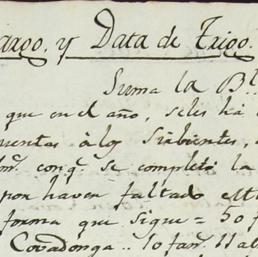 argo, y Data de Trigo.
Suma la Bl.
que en el año, seles ha
uentas à los Sirbientes,
fanˢ. con q.ᵉ se completò la
por haver faltado
forma que sigue = 50 f
Covadonga.. 10 fan. 11 al